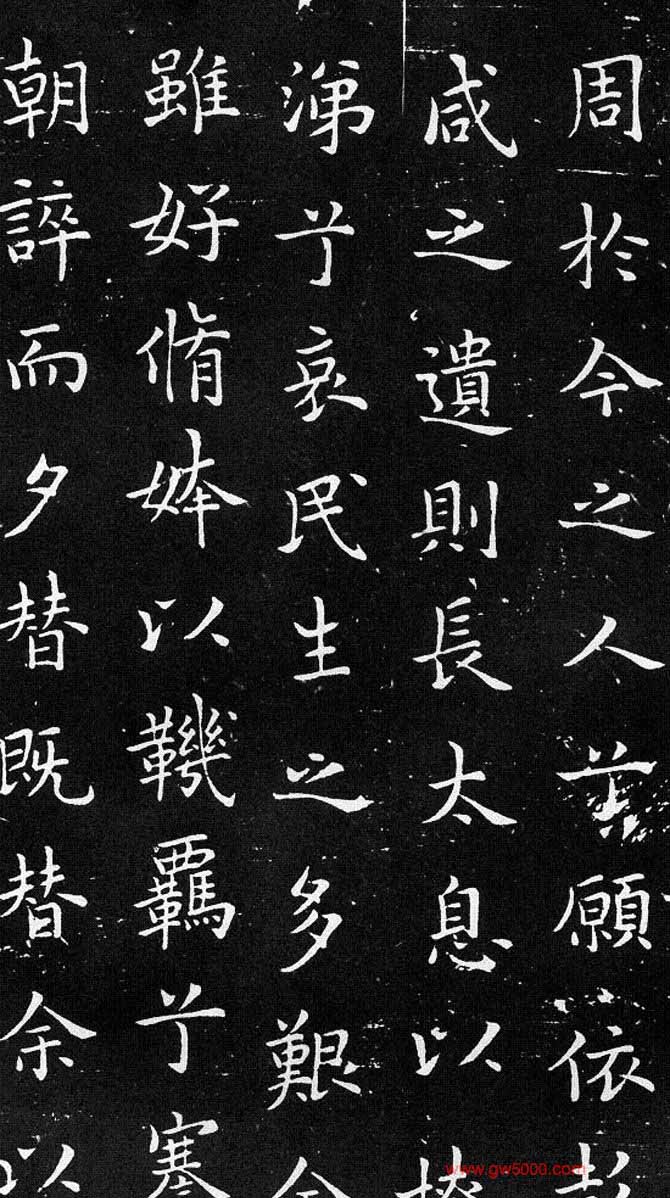 周於今之人兮願依
咸之遺則長太息以
涕兮哀民生之多艱
雖好脩姱以鞿羈兮
朝誶而夕替既替余以
www.gw5000.com